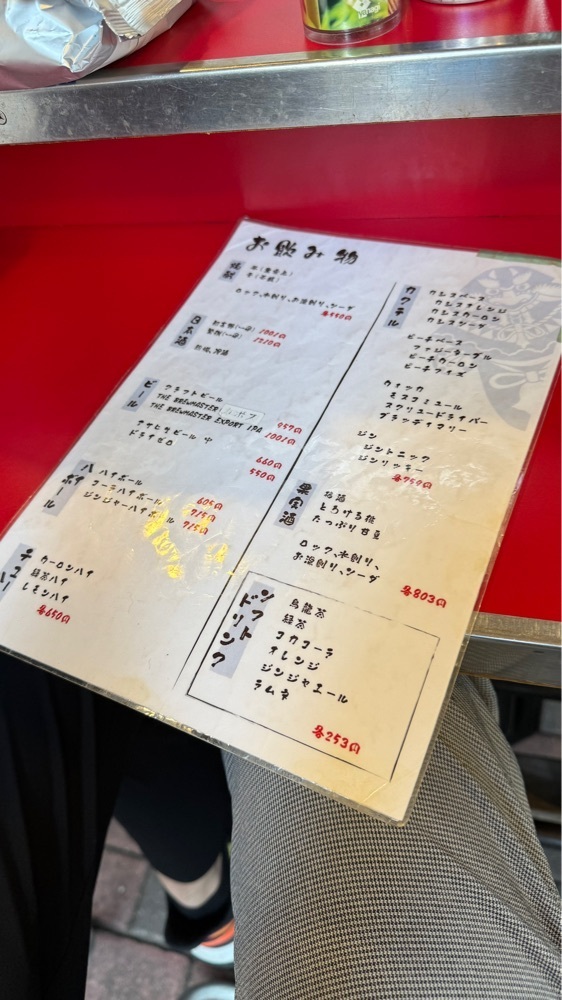 お飲み物
焼酎
ロック、水割り、お湯割り、ソーダ
日本酒
1001円
1210円
ビール
クラフトビール
THE BREWMASTER
957円
THE BREWMASTER EXPORT IPA
1001円
アサヒ生ビール 中
660円
ドライゼロ
550円
ハイボール
ハイボール
605円
コーラハイボール
715円
ジンジャーハイボール
715円
チューハイ
ウーロンハイ
緑茶ハイ
レモンハイ
各650円
カクテル
カシスベース
カシスオレンジ
カシスウーロン
カシスソーダ
ピーチベース
ファジーネーブル
ピーチウーロン
ピーチフィズ
ウォッカ
モスコミュール
スクリュードライバー
ブラッディマリー
ジン
ジントニック
ジンリッキー
各759円
果実酒
梅酒
とろける桃
たっぷり甘夏
ロック、水割り、
お湯割り、ソーダ
各803円
ソフトドリンク
烏龍茶
緑茶
コカコーラ
オレンジ
ジンジャエール
ラムネ
各253円